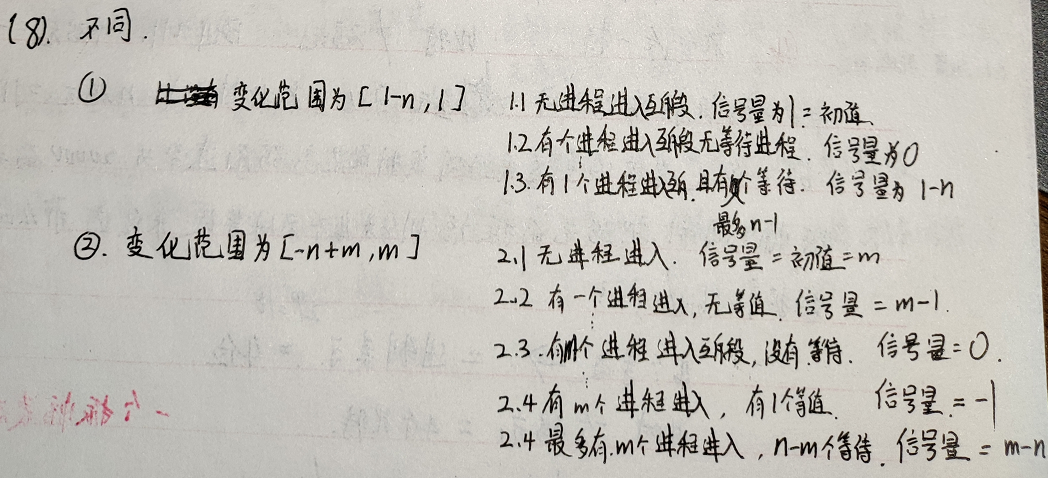 (8). 不同.
① 变化范围为[1-n,1]
1.1 无进程进入互斥段. 信号量为1=初值.
1.2. 有1个进程进入互斥段无等待进程. 信号量为0
1.3. 有1个进程进入互斥, 且有 个等待. 信号量为 1-n
最多n-1
②. 变化范围为[-n+m,m]
2.1 无进程进入. 信号量=初值=m
2.2 有一个进程进入, 无等值. 信号量=m-1.
2.3. 有m个进程进入互斥段, 没有等待. 信号量=0.
2.4 有m个进程进入, 有1个等值. 信号量=-1
2.4 最多有.m个进程进入, n-m个等待. 信号量=m-n